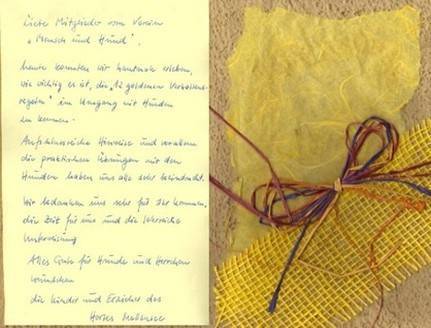 Liebe Mitglieder vom Verein
„Mensch und Hund",
heute konnten wir hautnah erleben,
wie wichtig es ist, die „12 goldenen Verhaltens-
regeln" im Umgang mit Hunden
zu kennen.
Aufschlussreiche Hinweise und vor allem
die praktischen Übungen mit den
Hunden haben uns alle sehr beeindruckt.
Wir bedanken uns sehr für Ihr kommen,
die Zeit für uns und die lehrreiche
Unterweisung
Alles Gute für Hunde und Herrchen
wünschen
die Kinder und Erzieher des
Hortes